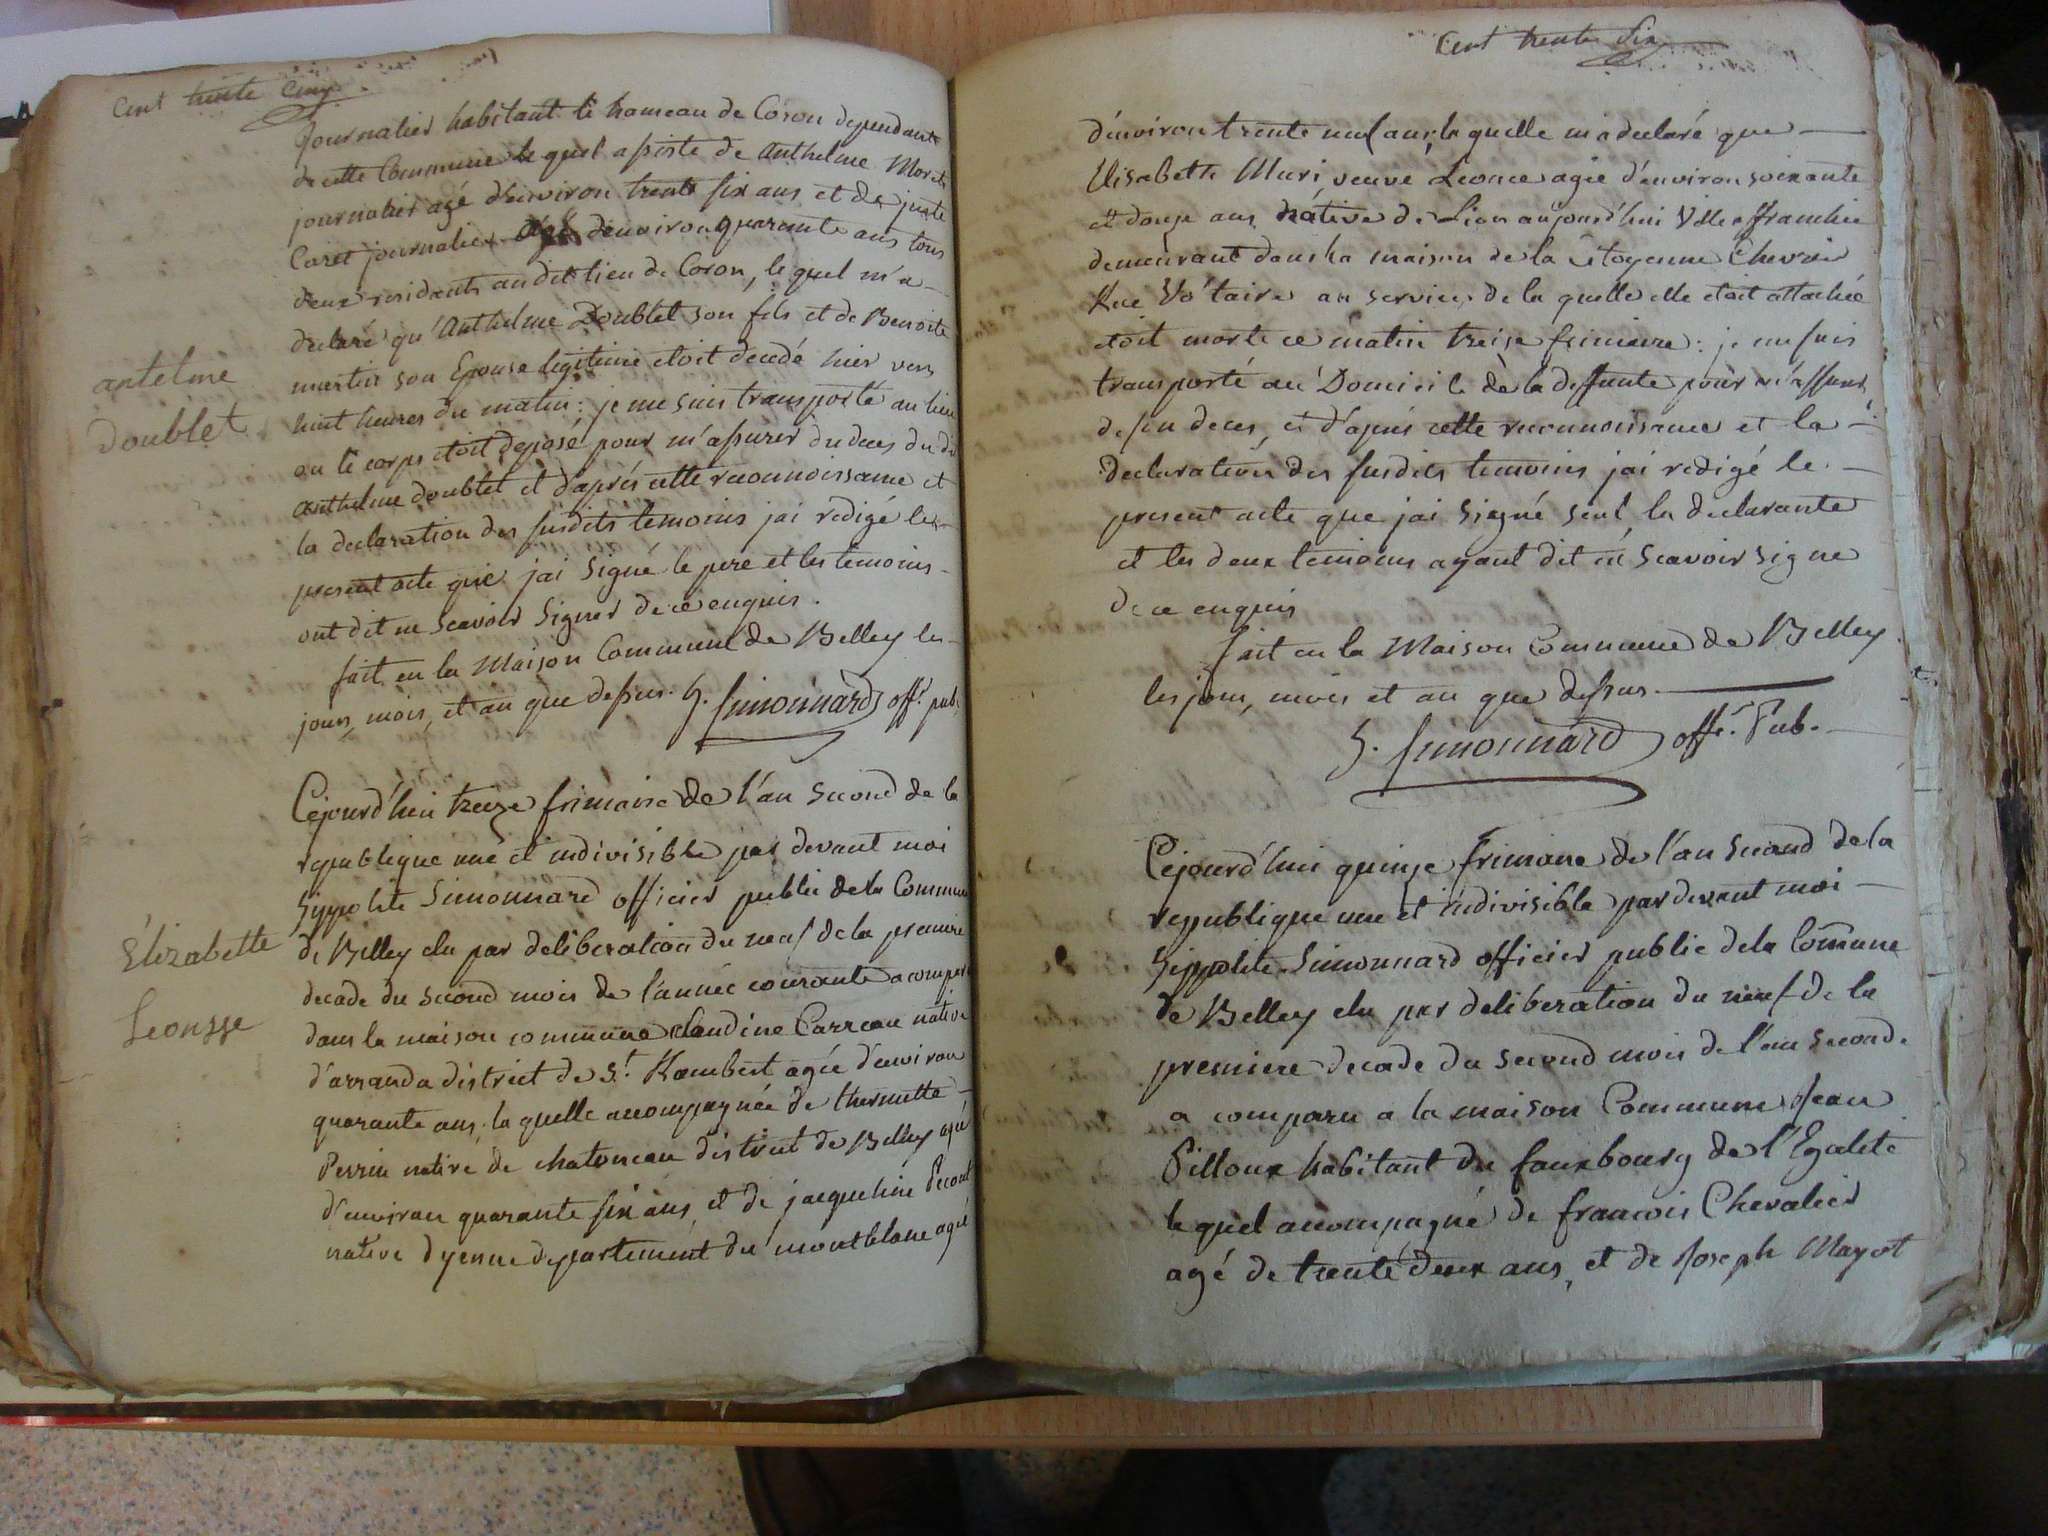 Cent trente Cinq.
Journalier habitant le hameau de Coron dependant
de cette Commune le quel assisté de Anthelme Moret
journalier agé d'environ trente six ans et de juste
Caret journalier agé d'environ quarante ans tous
deux residants au dit lieu de Coron, le quel m'a
declaré qu'Anthelme Doublet son fils et de Benoite
martin son Epouse legitime etoit decedé hier vers
huit heures du matin: je me suis transporté au lieu
ou le corps etoit deposé pour m'assurer du deces du dit
Anthelme doublet et d'aprés cette reconnoissance et
la declaration des susdits temoins jai redigé le
present acte que jai Signé le pere et les temoins
ont dit ne Scavoir Signer de ce enquis.
fait en la Maison Commune de Belley les
jours, mois, et an que dessus. h. Simonnard off. pub.
antelme
doublet
Cejourd'hui treize frimaire de l'an second de la
republique une et indivisible par devant moi
hippolite Simonnard officier public de la Commune
de Belley elu par deliberation du neuf de la premiere
decade du second mois de l'année courante a comparu
dans la maison commune claudine Carreau native
d'arranda district de St. Rambert agée d'environ
quarante ans, la quelle accompagnée de thermette
Perrin native de chatoneau district de Belley agée
d'environ quarante six ans, et de jacqueline
native d'yenne departement du montblanc agée
Élizabette
Leonsse
Cent trente Six
d'environ trente neuf ans, la quelle m'a declaré que
Elisabette Muri, veuve Leonce agée d'environ soixante
et douze ans native de Lion aujourd'hui Ville affranchie
demeurant dans la maison de la Citoyenne Chevrier
Rue Voltaire au service de la quelle elle etoit attachée
etoit morte ce matin treize frimaire: je me suis
transporté au Domicile de la deffunte pour m'assurer
de son deces, et d'aprés cette reconnoissance et la
declaration des susdits temoins jai redigé le
present acte que jai Signé seul, la declarante
et les deux temoins ayant dit ne Scavoir signe
de ce enquis
fait en la Maison Commune de Belley
les jour, mois et an que dessus.
h. Simonnard offr. Pub.
Cejourd'hui quinze frimaire de l'an second de la
republique une et indivisible par devant moi
hippolite Simonnard officier public de la Commune
de Belley elu par deliberation du neuf de la
premiere decade du second mois de l'an second
a comparu a la maison Commune Jean
Pilloux habitant du fauxbourg de l'Egalité
le quel accompagné de francois Chevalier
agé de trente deux ans, et de Joseph Mayot